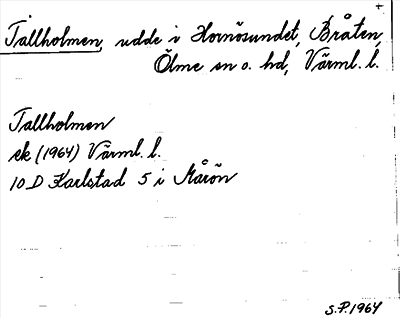 Tallholmen, udde i Hornösundet, Bråten,
Ölme sn o. hd, Värml. l.
Tallholmen
ek (1964) Värml. l.
10 D Karlstad 5 i Mårön
S.P. 1964